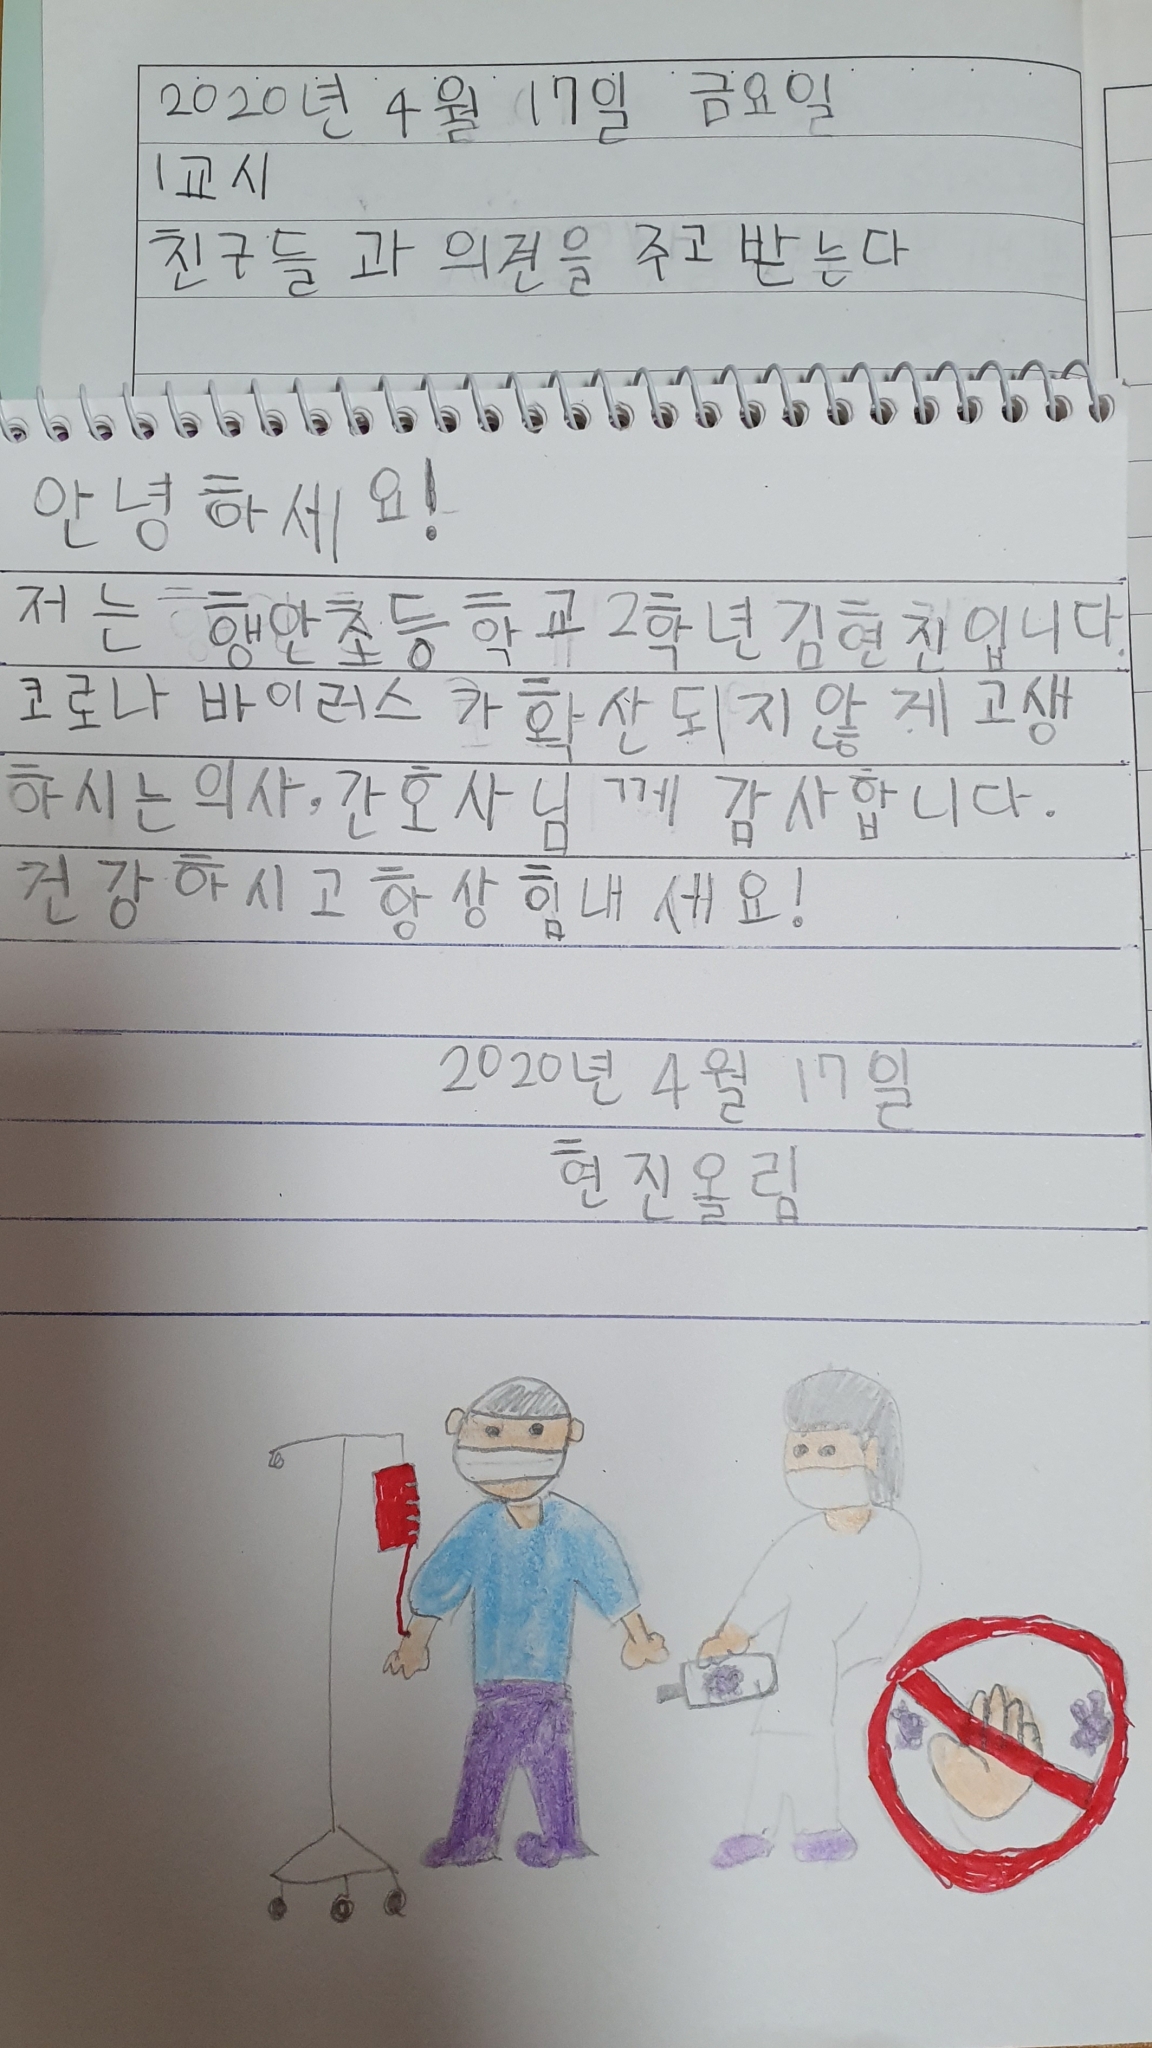 2020년 4월 17일 금요일
1교시
친구들 과 의견을 주고 받는다
안녕하세요!
저는 행안초등학교 2학년 김현진입니다.
코로나 바이러스 가 확산되지 않게 고생
하시는 의사, 간호사님 께 감사합니다.
건강하시고 항상 힘내세요!
2020년 4월 17일
현진올림